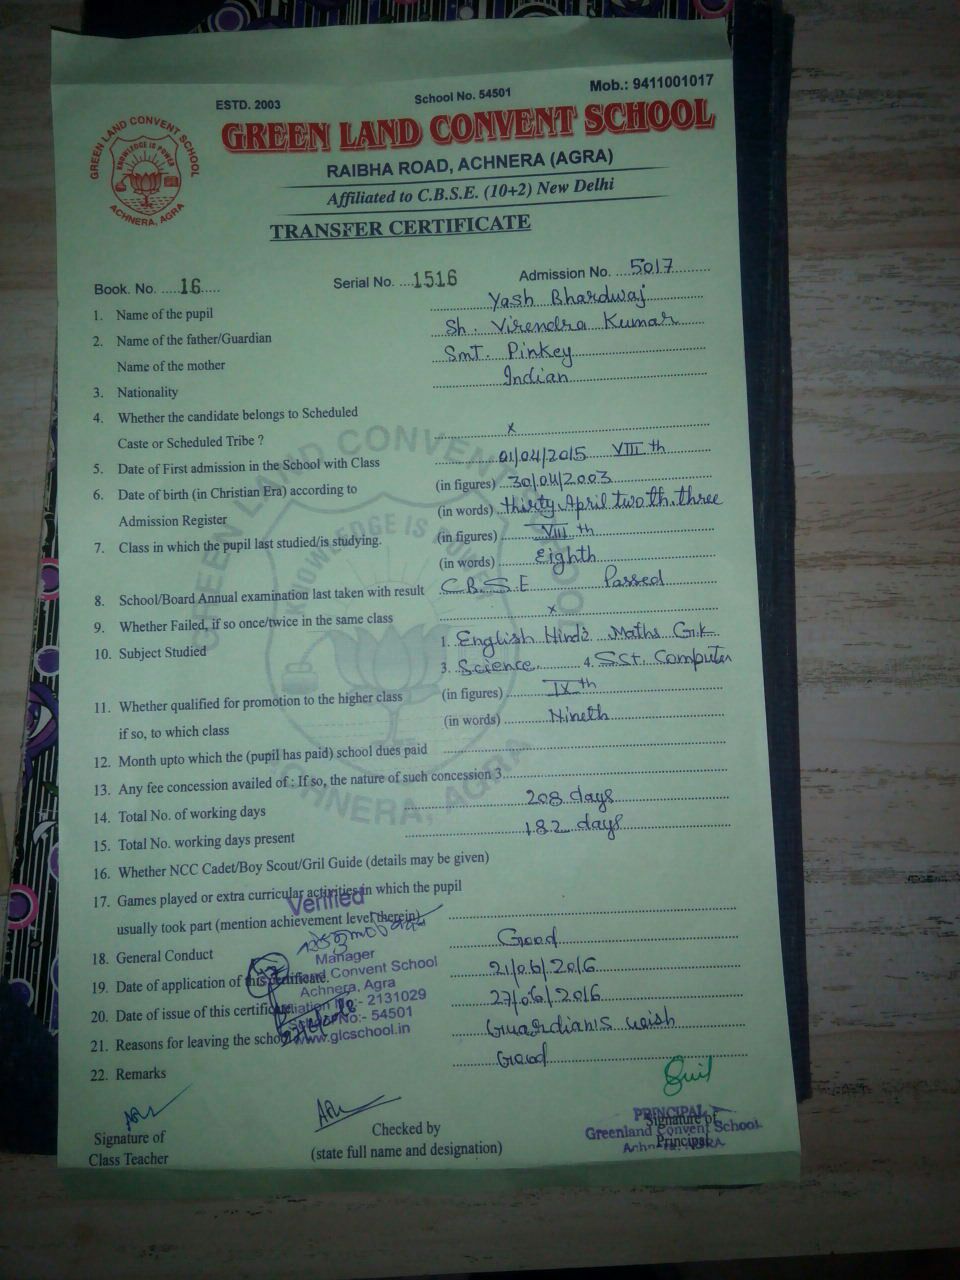 ESTD. 2003 School No. 54501 Mob.: 9411001017
GREEN LAND CONVENT SCHOOL
KNOWLEDGE IS POWER
ACHNERA, AGRA
GREEN LAND CONVENT SCHOOL
RAIBHA ROAD, ACHNERA (AGRA)
Affiliated to C.B.S.E. (10+2) New Delhi
TRANSFER CERTIFICATE
Book. No. .....16..... Serial No. ....1516 Admission No. ...5017
1. Name of the pupil Yash Bhardwaj
2. Name of the father/Guardian Sh. Virendra Kumar
Name of the mother Smt. Pinkey
3. Nationality Indian
4. Whether the candidate belongs to Scheduled
Caste or Scheduled Tribe ? x
5. Date of First admission in the School with Class 01/04/2015 VIII th
6. Date of birth (in Christian Era) according to (in figures) 30/04/2003
Admission Register (in words) thirty April two th. three
7. Class in which the pupil last studied/is studying. (in figures) VIII th
(in words) Eighth
8. School/Board Annual examination last taken with result C.B.S.E Passed
9. Whether Failed, if so once/twice in the same class x
10. Subject Studied 1. English Hindi Maths G.K
3. Science 4. SSt. Computer
11. Whether qualified for promotion to the higher class (in figures) IX th
if so, to which class (in words) Nineth
12. Month upto which the (pupil has paid) school dues paid
13. Any fee concession availed of : If so, the nature of such concession 3
14. Total No. of working days 208 days
15. Total No. of working days present 182 days
16. Whether NCC Cadet/Boy Scout/Gril Guide (details may be given)
17. Games played or extra curricular activities in which the pupil
usually took part (mention achievement level therein)
18. General Conduct Good
19. Date of application of this certificate. 21/06/2016
20. Date of issue of this certificate 27/06/2016
21. Reasons for leaving the school Guardian's weish
22. Remarks Good
Verified
Manager
Green Land Convent School
Achnera, Agra
Affiliation No:- 2131029
School No:- 54501
www.glcschool.in
PRINCIPAL
Greenland Convent School
Achnera, AGRA
Signature of
Class Teacher
Checked by
(state full name and designation)
Signature of
Principal
GREEN LAND CONVENT SCHOOL
KNOWLEDGE IS POWER
ACHNERA, AGRA